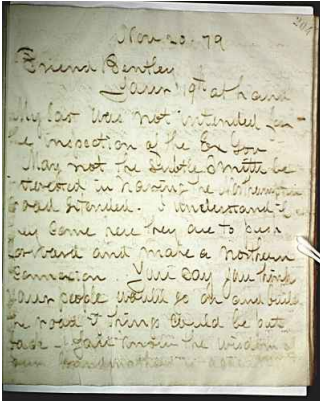 204
Nov 20 - 79
Friend Bentley
Yours 19th at hand
My last was not intended for
the inspection of the Ex Gov
May not the Smith be
interested in having the Northampton
road extended. I understand if
they come here they are to push
forward and make a northern
connexion You say you think
your people would go on and build
the road I think would be put
back - You know the wisdom of